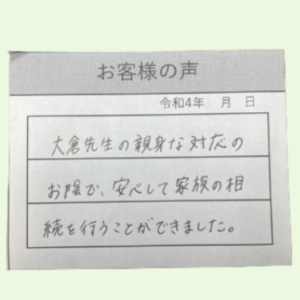 お客様の声
令和4年　月　日
大倉先生の親身な対応の
お陰で、安心して家族の相
続を行うことができました。